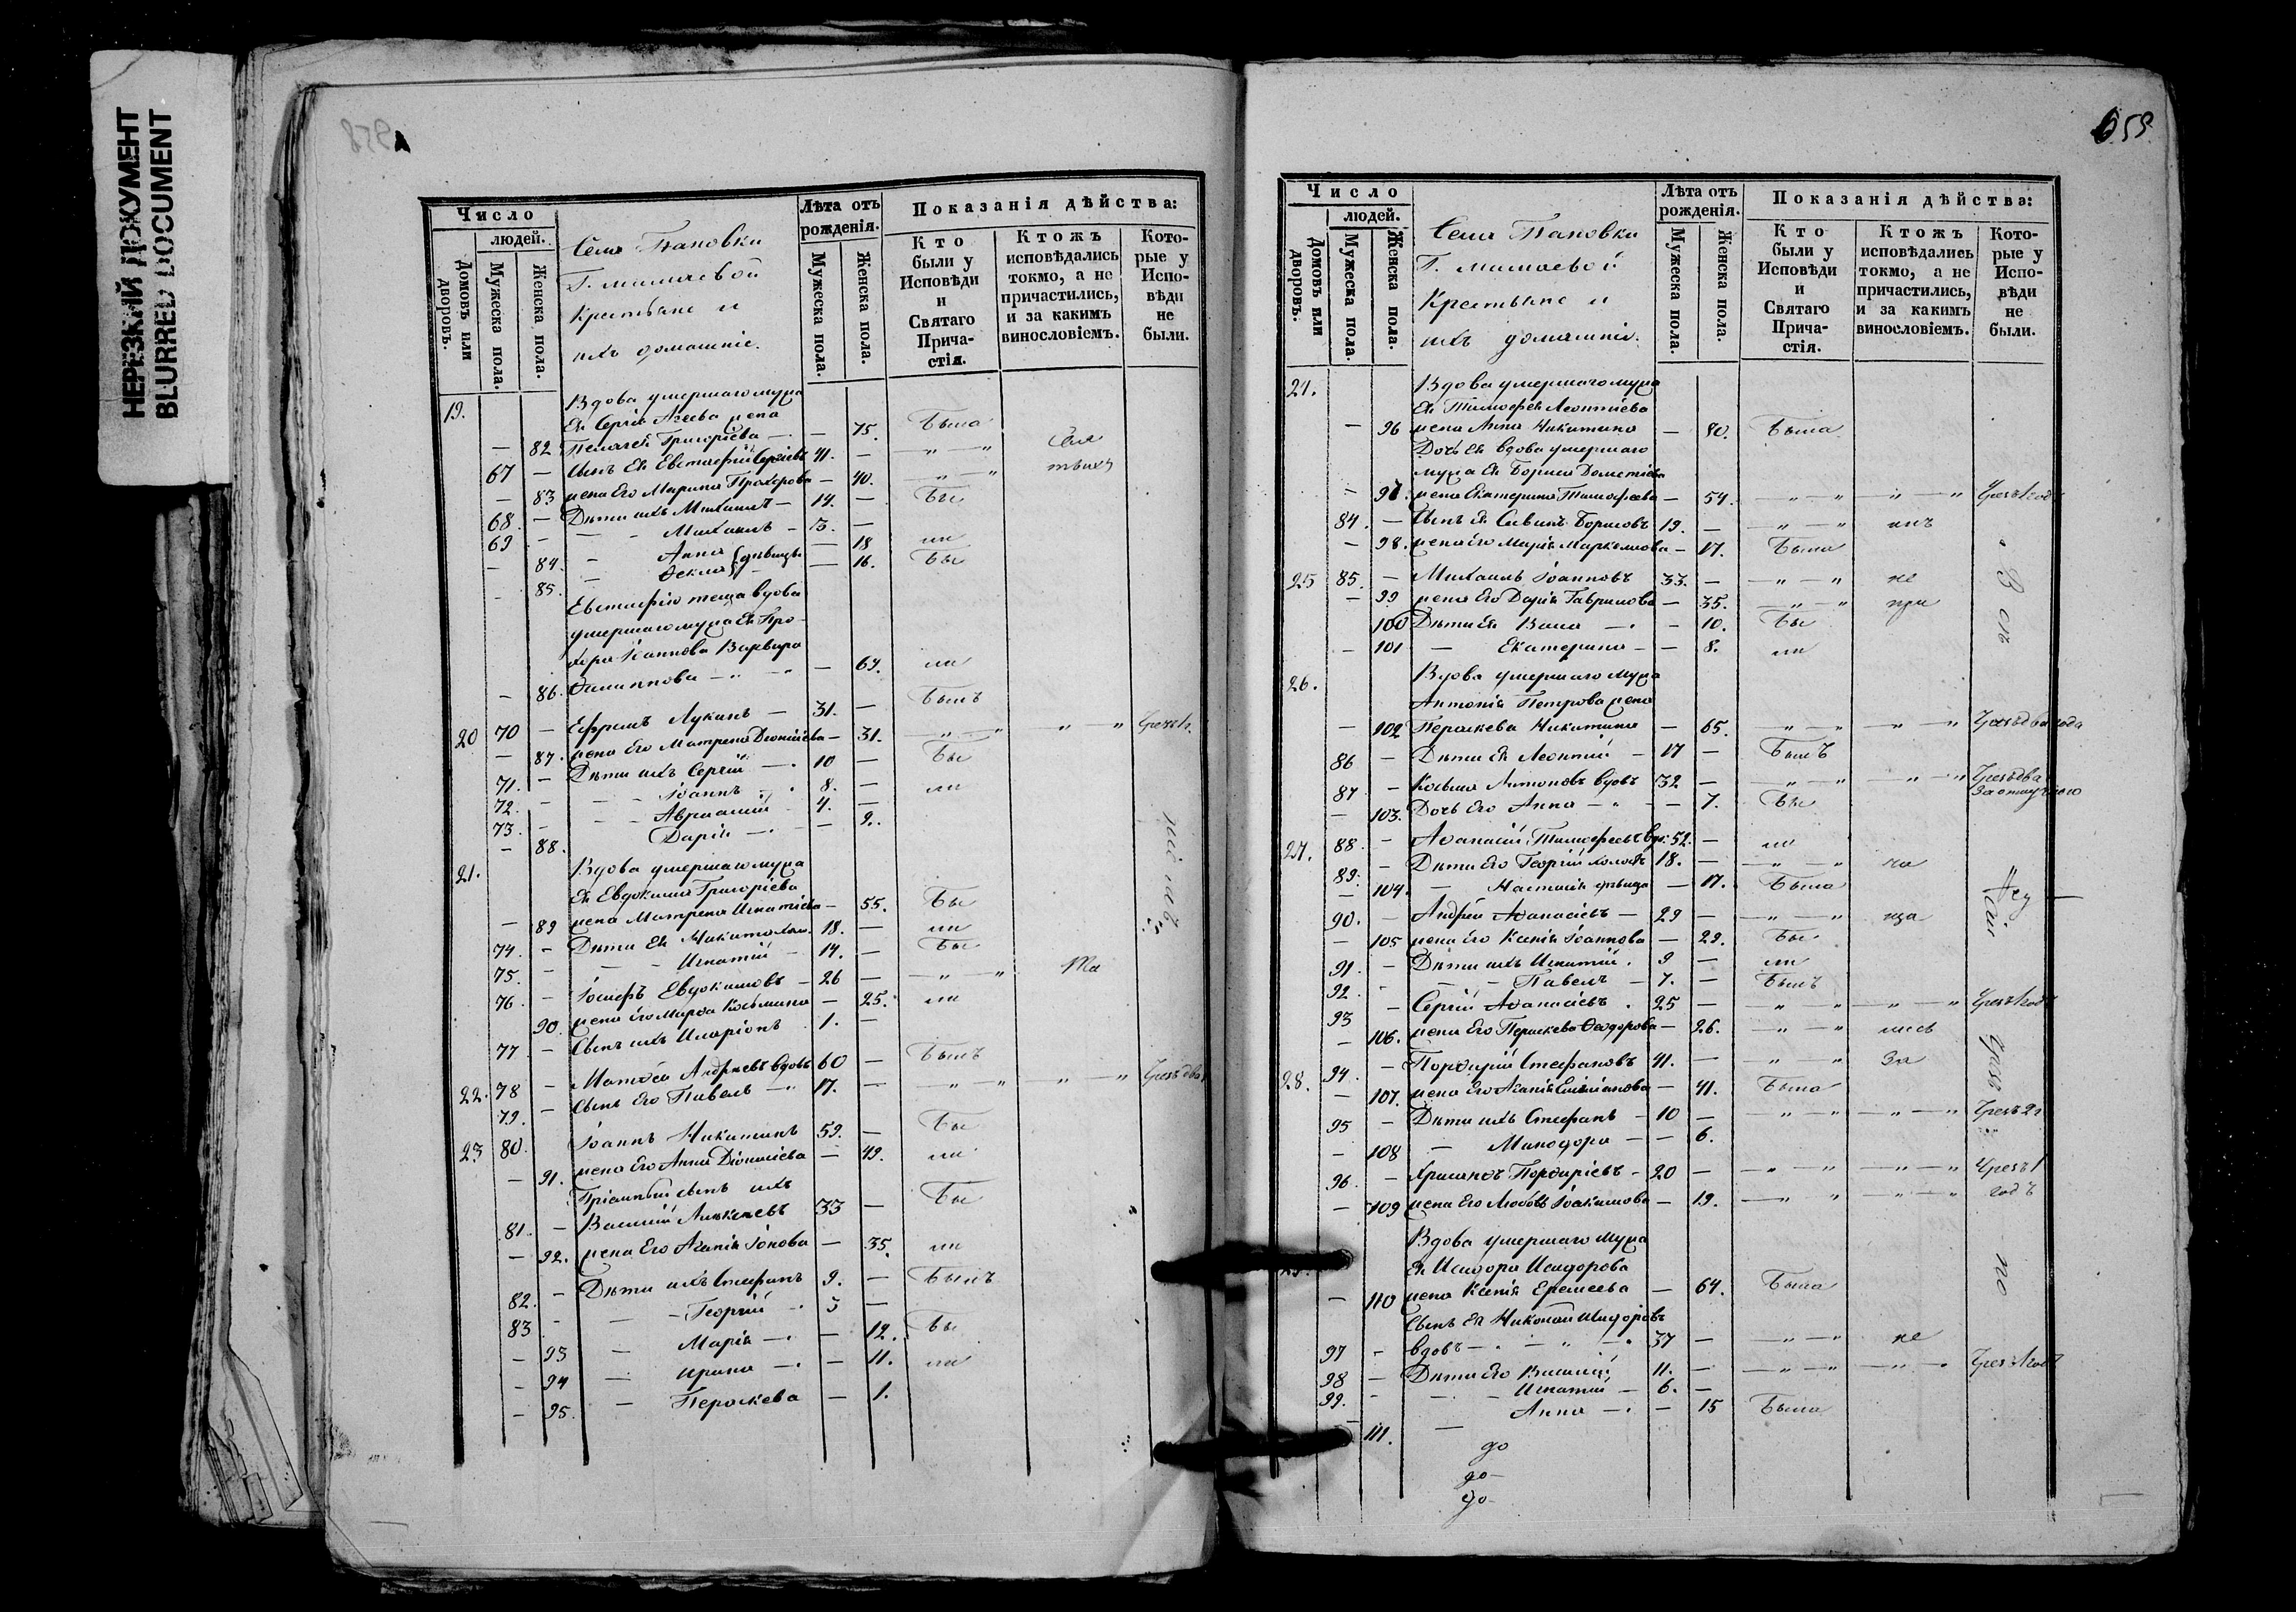 НЕРЕЗКИЙ ДОКУМЕНТ
BLURRED DOCUMENT
Число
людей.
Домовъ или дворовъ.
Мужеска пола.
Женска пола.
Села Пановки
Крестьяне и
ихъ домашніе.
Лѣта отъ рожденія.
Мужеска пола.
Женска пола.
Показанія дѣйства:
Кто были у Исповѣди и Святаго Причастія.
Ктожъ исповѣдались токмо, а не причастились, и за какимъ винословіемъ.
Которые у Исповѣди не были.
19. Вдова умершаго мужа
Ея Сергія Агеева жена
— 82 Пелагея Григорьева — — 75. Была
67 — Сынъ Ея Евстафій Сергіевъ 41. — „ — „
— 83 жена Его Марина Прохорова — 40. „ — „
68. — Дѣти ихъ Михаилъ — 14. — Бы
69 — — Михаилъ — 3. —
— 84. — Анна — 18 ли
— 85. — Ѳекла дѣвицы — 16. Бы
Евстафія теща вдова
умершаго мужа Ея Про-
хора Іоаннова Варвара
— 86. Филиппова — — 69. ли
20 70 — Ефремъ Лукинъ — 31. — Былъ
— 87. жена Его Матрена Діонисіева — 31. „ — „ „ — „
71. — Дѣти ихъ Сергій — 10 — Бы
72. — — Іоаннъ 8. — ли
73. — — Авраамій 4. —
— 88. Дарія — — 2.
21. Вдова умершаго мужа
Ея Евдокима Григоріева
— 89 жена Матрена Игнатіева — 55. Бы
74. — Дѣти Ея Никита хол. 18. — ли
75. — — Игнатій — 14. — Бы
76. — Іосифъ Евдокимовъ — 26 — — „ — „
90. жена Его Марѳа Козьмина — 25. ли
77. — Сынъ ихъ Иларіонъ 1. —
22. 78 — Матѳей Андреевъ вдовъ 60 — Былъ
79. — Сынъ Его Павелъ — 17. — „ — „ „ — „ Чрезъ два
23 80. Іоаннъ Никитинъ 59. — Бы
— 91. жена Его Анна Діонисіева — 49. ли
Пріемный сынъ ихъ
81. — Василій Алексѣевъ 33 — Бы
— 92. жена Его Агапія Іонова — 35. ли
82. — Дѣти ихъ Стефанъ 9. — Былъ
83 — — Георгій — 5 —
— 93 — Марія — — 12. Бы
— 94 — Ирина — — 11. ли
— 95. — Пераскева — 1.
659
Число
людей.
Домовъ или дворовъ.
Мужеска пола.
Женска пола.
Села Пановки
Крестьяне и
ихъ домашніе.
Лѣта отъ рожденія.
Мужеска пола.
Женска пола.
Показанія дѣйства:
Кто были у Исповѣди и Святаго Причастія.
Ктожъ исповѣдались токмо, а не причастились, и за какимъ винословіемъ.
Которые у Исповѣди не были.
24. Вдова умершаго мужа
Ея Тимофея Леонтіева
— 96 жена Анна Никитина — 80. Была
Дочь Ея вдова умершаго
мужа Ея Бориса Дометіева
— 97. жена Екатерина Тимофеева — 54. — „ — „ — „ — „ Чрезъ 1 годъ
84. — Сынъ Ея Савинъ Борисовъ 19. — — „ — „
— 98. жена Его Марія Маркелова — 17. Была
25 85. — Михаилъ Іоанновъ 33. — — „ — „ не
— 99 жена Его Дарія Гаврилова — 35. — „ — „ при
100 Дѣти Ея Васса — — 10. Бы
— 101 — Екатерина — — 8. ли
26. Вдова умершаго мужа
Антонія Петрова жена
— 102 Перaскева Никитина — 65. — „ — „ „ — „ Чрезъ два года
86 — Дѣти Ея Леонтій — 17 — Былъ
87 — Козьма Антоновъ вдовъ 32 — — „ — „ — „ — „ Чрезъ два
— 103. Дочь Его Анна — — 7. Бы
27. 88 — Аѳанасій Тимофеевъ вд. 52. — ли
89. — Дѣти Его Георгій холостъ 18. — — „ — „
— 104. — Настасія дѣвица — 17. Была
90. — Андрей Аѳанасіевъ — 29 — — „ — „
— 105 жена Его Ксенія Іоаннова — 29. Бы
91. — Дѣти ихъ Игнатій. 9 — ли
92. — — Павелъ — 7. — Былъ
93 — Сергій Аѳанасіевъ. 25 — „ — „ „ — „ Чрезъ 1 годъ
— 106. жена Его Перaскева Ѳеодорова — 26. — „ — „ лись
28. 94. — Порфирій Стефановъ 41. — „ — „ За
— 107. жена Его Агапія Емиліанова — 41. Была
95 — Дѣти ихъ Стефанъ — 10 — „ — „ — „ — „ Чрезъ 2
— 108 — Минодора — — 6.
96. — Хрисанѳъ Порфиріевъ — 20 — — „ — „ — „ — „ Чрезъ 1
— 109 жена Его Любовь Іоакимова — 19. — „ — „ — „ — „ годъ
29. Вдова умершаго мужа
Ея Исидора Исидорова
— 110 жена Ксенія Еремеева — 64. Была
Сынъ Ея Николай Исидоровъ
97 — вдовъ — 37 — — „ — „ не
98 — Дѣти Его Василій 11. — — „ — „ — „ — Чрезъ 1 годъ
99. — — Игнатій — 6. —
— 111. — Анна — — 15 Была
до
до —
до —